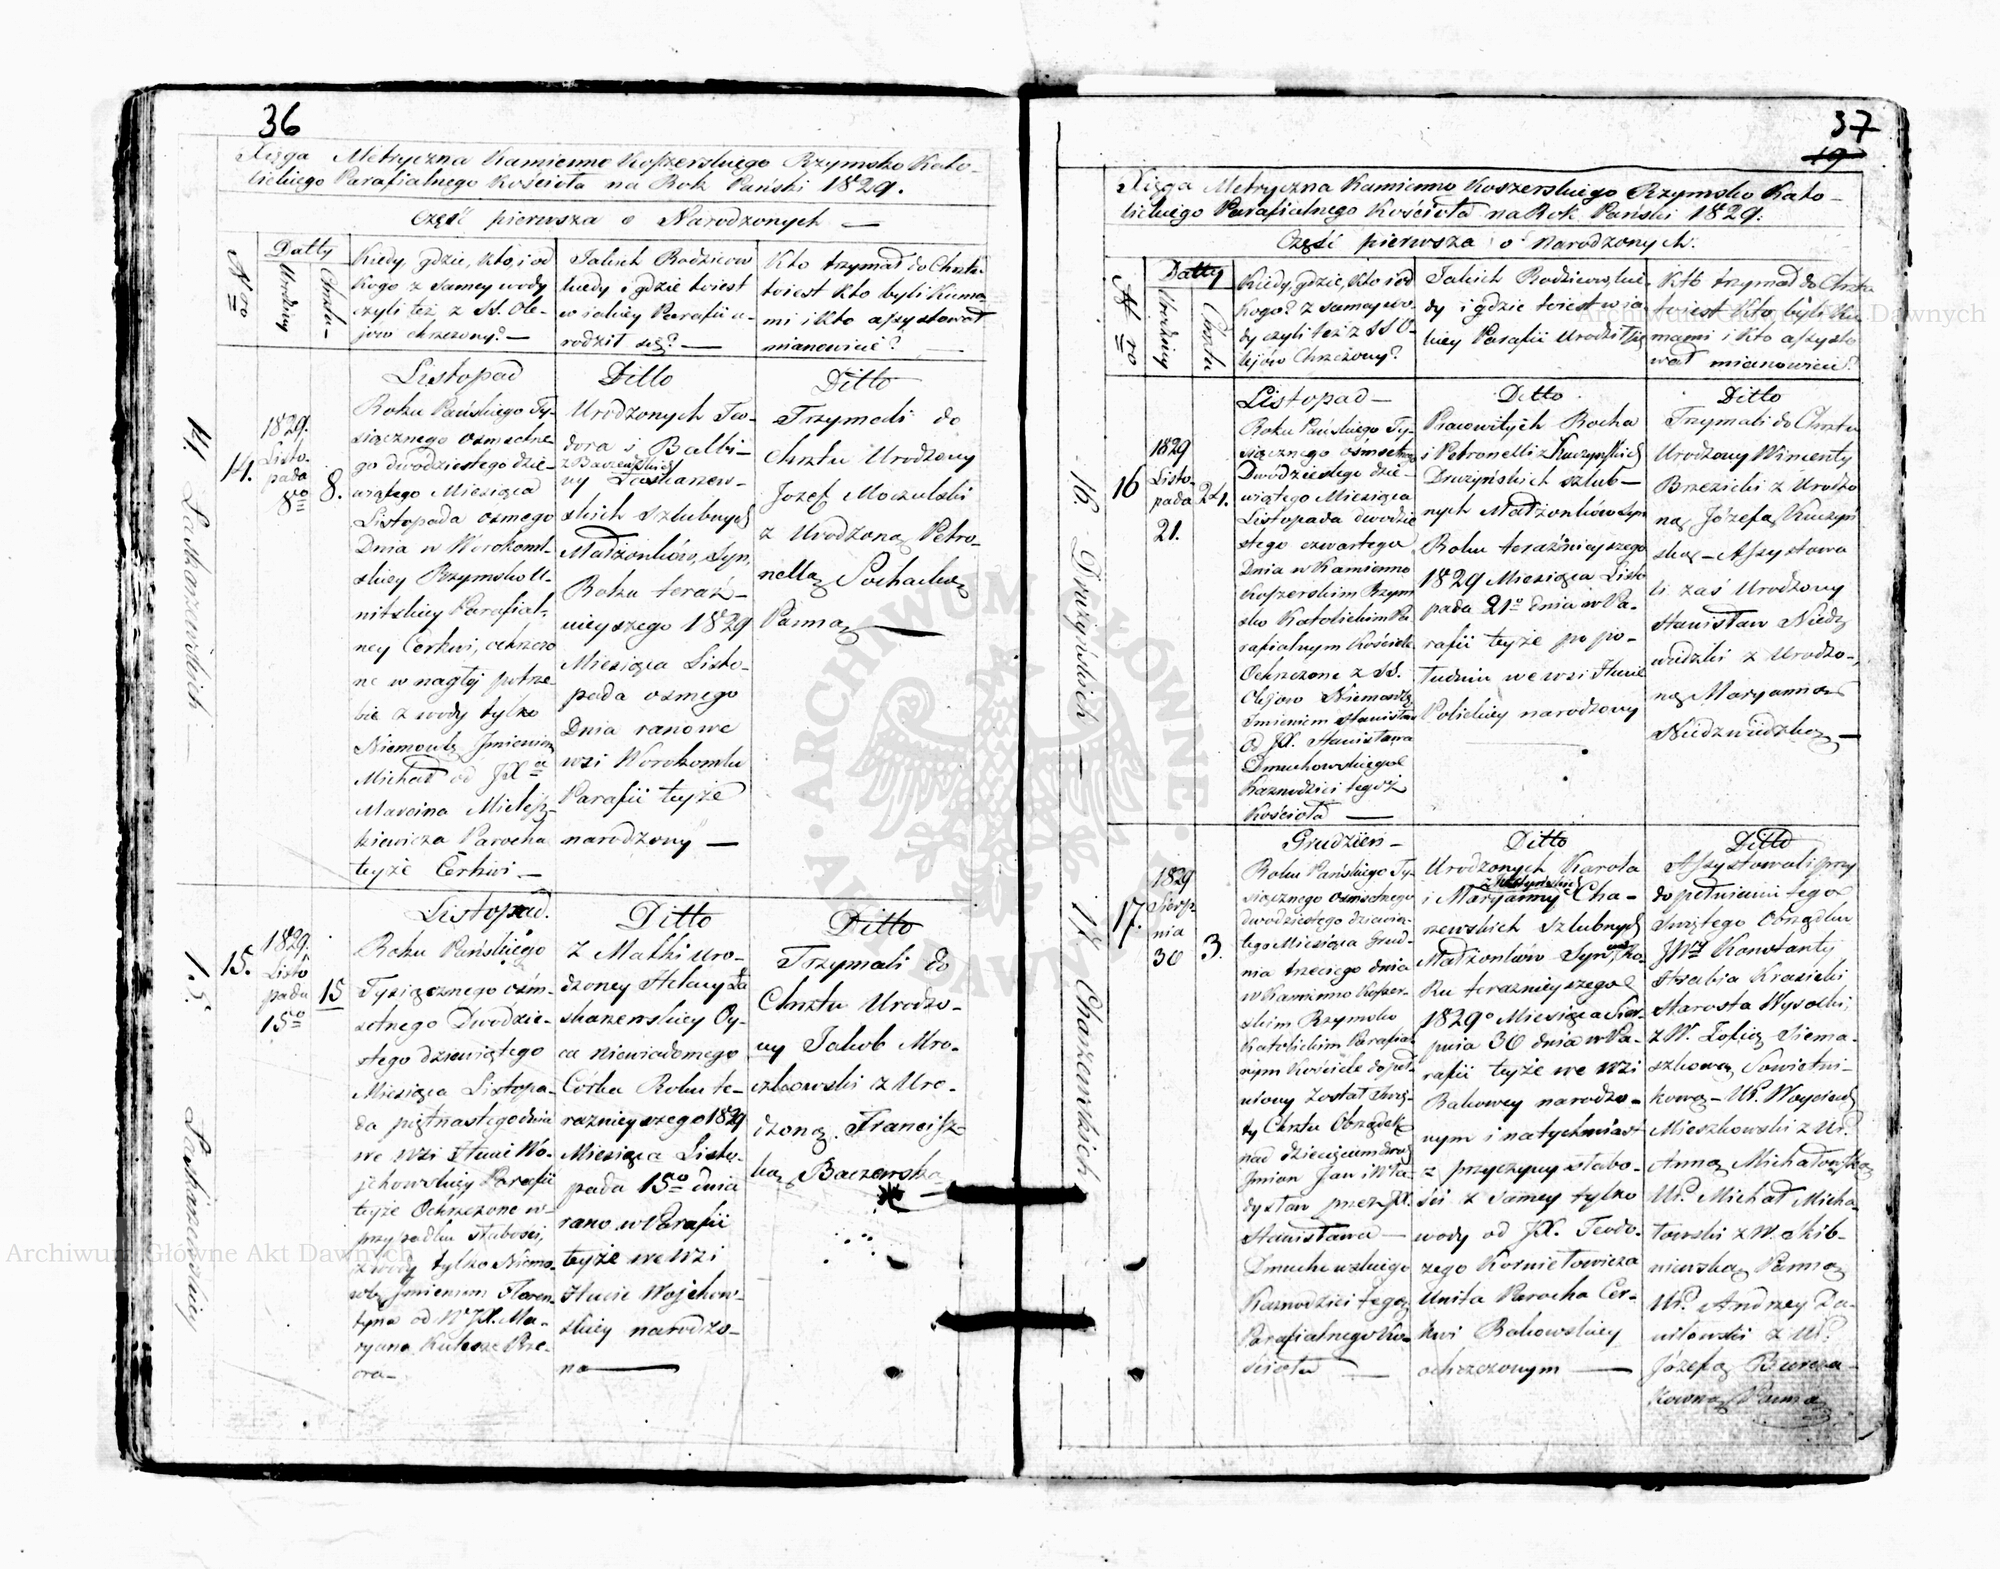 36
Xięga Metryczna Kamienno Koszerskiego Rzymsko Kato-
lickiego Parafialnego Kościoła na Rok Pański 1829.
Część pierwsza o Narodzonych —
Nro
Datty
Urodziny
Chrztu
Kiedy, gdzie, kto, i od
kogo z samey wody
czyli też z SS. Ole-
jów chrzczony? —
Jakich Rodziców
kiedy i gdzie kwiest
w jakiey Parafii u-
rodził się? —
Kto trzymał do Chrztu
kwiest kto byli Kuma-
mi i kto assystował
mianowicie? —
14. Laskarzewskich
14.
1829.
Listo-
pada
8o
8.
Listopad
Roku Pańskiego Ty-
siącznego osmsetne-
go dwódziestego dzie-
wiątego Miesiąca
Listopada osmego
Dnia w Worokoml-
skiey Rzymsko U-
nitskiey Parafial-
ney Cerkwi, ochrzczo
ne w nagłej potrze-
bie z wody tylko
Niemowlę Jmieniem
Michał od JXa
Marcina
kiewicza Parocha
teyże Cerkwi —
Ditto
Urodzonych Teo-
dora i Balbi-
ny Laskarzew-
skich szlubnych
Małżonków, Syn,
Roku teraź-
nieyszego 1829
Miesiąca Listo-
pada osmego
Dnia rano we
wsi Worokomlu
Parafii teyże
narodzony —
Ditto
Trzymali do
Chrztu Urodzony
Jozef Moczulski
z Urodzoną Petro-
nellą Sochacką
Panną —
15. Laskarzewskiey
15.
1829.
Listo
pada
15o
15
Listopad.
Roku Pańskiego
Tysiącznego ośm-
setnego Dwódzie-
stego dziewiątego
Miesiąca Listopa-
da piętnastego dnia
we wsi Hucie Wo-
jchowskiey Parafii
teyże Ochrzczone w
przypadku słabości,
z wody tylko Niemo-
wlę Jmieniem Floren-
tyna od WJX. Ma-
ryana Prze-
ora —
Ditto
Z Matki uro-
dzoney Heleny La
skarzewskiey Oy-
ca niewiadomego
Córka Roku te-
raznieyszego 1829
Miesiąca Listo-
pada 15o dnia
rano w Parafii
teyże we wsi
Hucie Wojchow-
skiey narodzo-
na —
Ditto
Trzymali do
Chrztu Urodzo-
ny Jakob Mro-
czkowski z Uro-
dzoną Francisz-
ką Baczewską
37
19
Xięga Metryczna Kamienno Koszerskiego Rzymsko Kato-
lickiego Parafialnego Kościoła na Rok Pański 1829.
Część pierwsza o Narodzonych.
Nro
Datty
Urodziny
Chrztu
Kiedy, gdzie, Kto i od
kogo? z samey wo-
dy czyli też z SS O-
lejów Chrzczony?
Jakich Rodziców, kie-
dy i gdzie kwiest w ja-
kiey Parafii Urodził się
Kto trzymał do Chrztu
kwiest Kto byli Ku-
mami i Kto assysto
wał mianowicie?
16. Drużyńskich —
16
1829
Listo-
pada
21.
24.
Listopad —
Roku Pańskiego Ty-
siącznego ośmsetnego
Dwódziestego dzie-
wiątego Miesiąca
Listopada dwódzie
stego czwartego
Dnia w Kamienno
Koszerskim Rzym
sko Katolickim Pa-
rafialnym Kościele
Ochrzczone z SS.
Olejow Niemowlę
Imieniem Stanisław
od JX. Stanisława
Dmuchowskiego
Kaznodziei tegoż
Kościoła —
Ditto
Pracowitych Rocha
i Petronelli z Kuczyńskich
Drużyńskich szlub-
nych Małżonków Syn
Roku teraźnieyszego
1829 Miesiąca Listo
pada 21o dnia w Pa-
rafii teyże po po-
łudniu we wsi Hucie
Polickiey narodzony
Ditto
Trzymali do Chrztu
Urodzony Wincenty
Brzezicki z Urodzo
ną Józefą Kuczyń
ską — Assystowa
li zaś Urodzony
Stanisław Niedz
wiedzki z Urodzo-
ną Maryanną
Niedzwiedzką —
17. Charzewskich
17.
1829
Sierp-
nia
30
3.
Grudzień —
Roku Pańskiego Ty-
siącznego osmsetnego
dwódziestego dziewią-
tego Miesiąca Grud-
nia trzeciego dnia
w Kamienno Koszer-
skim Rzymsko
Katolickim Parafial-
nym Kościele dopeł-
niony został Świę-
ty Chrztu Obrządek
nad dziecięciem dwoy
Jmion Jan i Wła-
dysław przez JX.
Stanisława —
Dmuchowskiego
Kaznodziei tegoż
Parafialnego Ko-
ścioła —
Ditto
Urodzonych Karola
i Maryanny Cha-
rzewskich szlubnych
Małżonków Syn, Ro-
ku teraznieyszego
1829o Miesiąca Sier-
pnia 30 dnia w Pa-
rafii teyże we wsi
Bakowey narodzo-
nym i natychmiast
z przyczyny słabo-
ści z samey tylko
wody od JX. Teodo-
zego Kornietowicza
Unita Parocha Cer-
kwi Bakowskiey
ochrzczonym —
Ditto
Assystowali przy
dopełnieniu tego
świętego Obrządku
JWny Konstanty
Hrabia Krasicki
Starosta Wysocki,
z W. Zofią Siema-
szkową Sowietni-
kową — Ur. Woyciech
Mieszkowski z Ur.
Anną Michałowską
Ur. Michał Micha-
łowski z W. Skib-
niewską Panną
Ur. Andrzey Da-
niłowski z Ur.
Józefą
Panną
Archiwum Główne Akt Dawnych
Archiwum Główne Akt Dawnych
ARCHIWUM GŁÓWNE AKT DAWNYCH